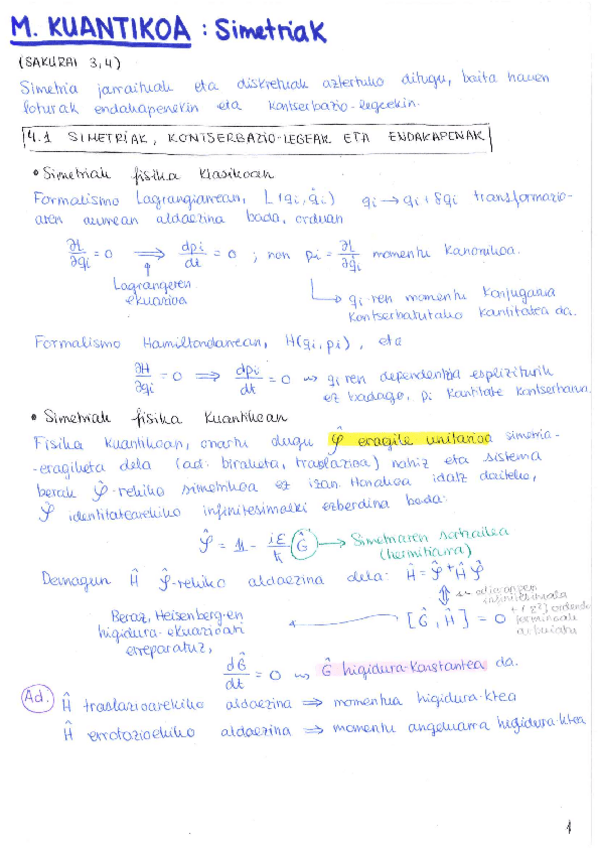 M. KUANTIKOA : Simetriak
(SAKURAI 3,4)
Simetria jarraituak eta diskretuak aztertuko ditugu, baita hauen
loturak endakapenekin eta kontserbazio-legeekin.
4.1 SIMETRIAK, KONTSERBAZIO-LEGEAK ETA ENDAKAPENAK
• Simetriak fisika klasikoan
Formalismo Lagrangiarrean, L(qi, q̇i) qi → qi + δqi transformazio-
aren aurrean aldaezina bada, orduan
∂L/∂qi = 0 ⟹ dpi/dt = 0 ; non pi = ∂L/∂q̇i momentu kanonikoa.
Lagrangeren
ekuazioa
qi-ren momentu konjugatua
kontserbatutako kantitatea da.
Formalismo Hamiltondarrean, H(qi, pi), eta
∂H/∂qi = 0 ⟹ dpi/dt = 0 ⇝ qi ren dependentzia espliziturik
ez badago, pi kantitate kontserbatua.
• Simetriak fisika kuantikoan
Fisika kuantikoan, onartu dugu 𝒮̂ eragile unitarioa simetria-
-eragiketa dela (ad: biraketa, traslazioa) nahiz eta sistema
berak 𝒮̂-rekiko simetrikoa ez izan. Honakoa idatz daiteke,
𝒮̂ identitatearekiko infinitesimalki ezberdina bada:
𝒮̂ = 𝟙 - iε/ħ Ĝ → Simetriaren sortzailea
(hermitiarra)
Demagun Ĥ 𝒮̂-rekiko aldaezina dela: Ĥ = 𝒮̂⁺Ĥ𝒮̂
[Ĝ, Ĥ] = 0
Beraz, Heisenberg-en
higidura-ekuazioari
erreparatuz,
dĜ/dt = 0 ⇝ Ĝ higidura-konstantea da.
Ad. Ĥ traslazioarekiko aldaezina ⟹ momentua higidura-ktea
Ĥ errotazioekiko aldaezina ⟹ momentu angeluarra higidura-ktea
1